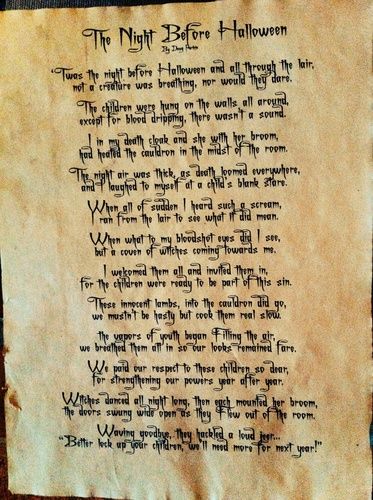 The Night Before Halloween
'Twas the night before Halloween and all through the lair,
not a creature was breathing, nor would they dare.
The children were hung on the walls all around,
except for blood dripping, there wasn't a sound.
I in my death cloak and she with her broom,
had heated the cauldron in the midst of the room.
The night air was thick, as death loomed everywhere,
and I laughed to myself at a child's blank stare.
When all of sudden I heard such a scream,
I ran from the lair to see what it did mean.
When what to my bloodshot eyes did I see,
but a coven of witches coming towards me.
I welcomed them all and invited them in,
for the children were ready to be part of this sin.
These innocent lambs, into the cauldron did go,
we mustn't be hasty but cook them real slow.
the vapors of youth began filling the air,
we breathed them all in so our looks remained fare.
We paid our respect to these children so dear,
for strengthening our powers year after year.
Witches danced all night long, then each mounted her broom,
the doors swung wide open as they flew out of the room.
Waving goodbye, they hackled a loud jeer...
"Better lock up your children, we'll need more for next year!"